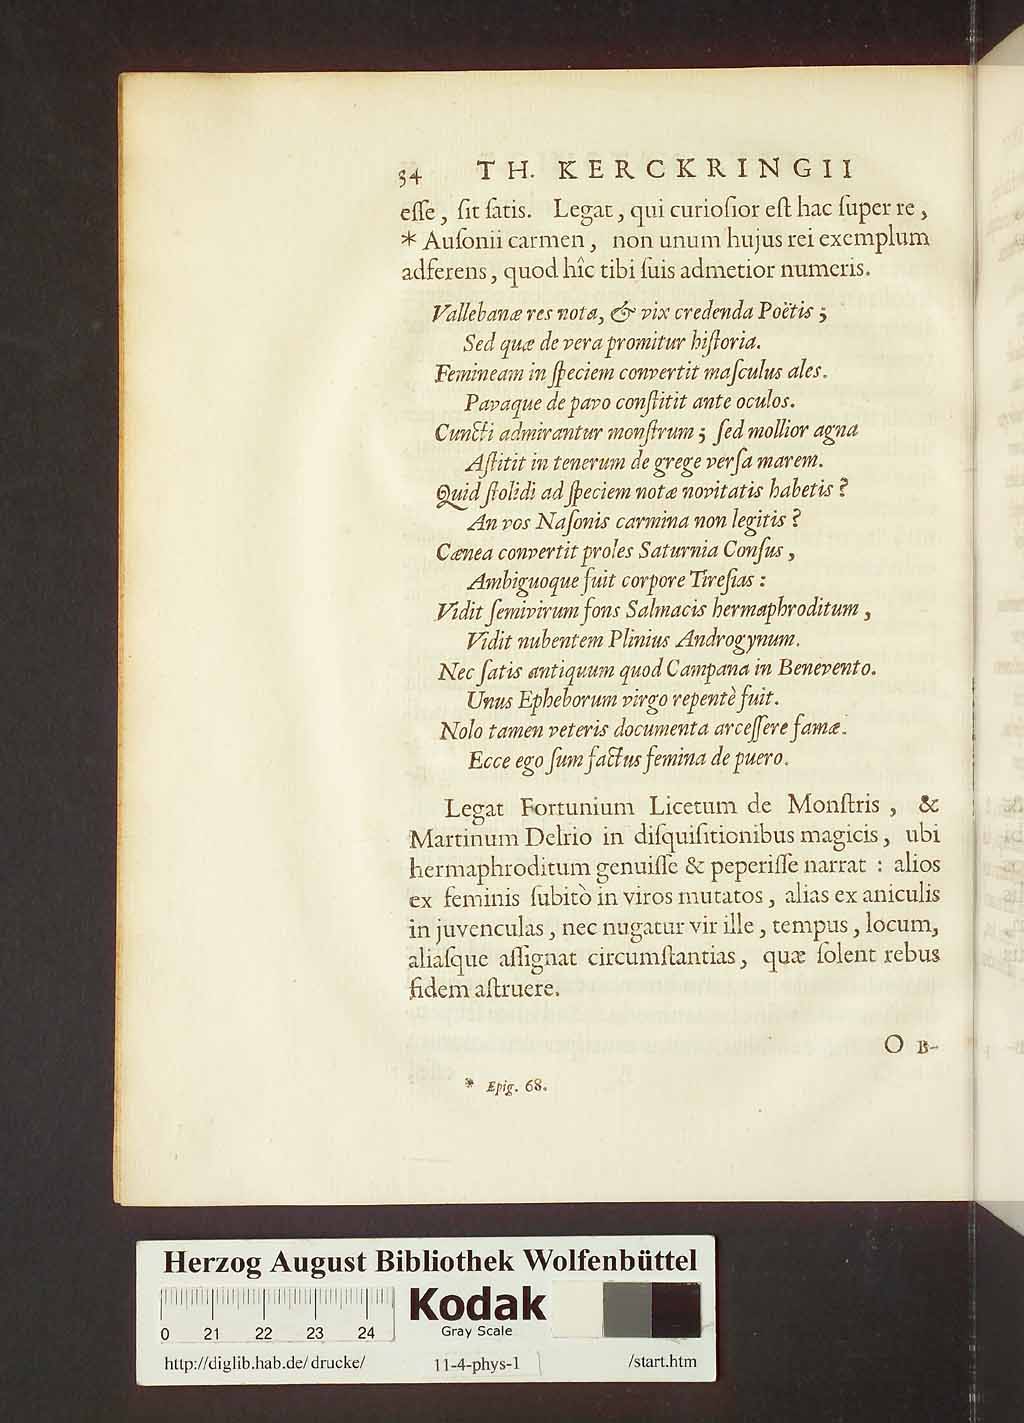 34 TH. KERCKRINGII
eſſe, ſit ſatis. Legat, qui curioſior eſt hac ſuper re,
* Auſonii carmen, non unum hujus rei exemplum
adferens, quod hîc tibi ſuis admetior numeris.
Vallebanæ res nota, & vix credenda Poëtis;
Sed quæ de vera promitur hiſtoria.
Femineam in ſpeciem convertit maſculus ales.
Pavaque de pavo conſtitit ante oculos.
Cuncti admirantur monſtrum; ſed mollior agna
Aſtitit in tenerum de grege verſa marem.
Quid ſtolidi ad ſpeciem notæ novitatis habetis?
An vos Naſonis carmina non legitis?
Cænea convertit proles Saturnia Conſus,
Ambiguoque fuit corpore Tireſias:
Vidit ſemivirum fons Salmacis hermaphroditum,
Vidit nubentem Plinius Androgynum.
Nec ſatis antiquum quod Campana in Benevento.
Unus Epheborum virgo repentè fuit.
Nolo tamen veteris documenta arceſſere famæ.
Ecce ego ſum factus femina de puero.
Legat Fortunium Licetum de Monſtris, &
Martinum Delrio in diſquiſitionibus magicis, ubi
hermaphroditum genuiſſe & peperiſſe narrat: alios
ex feminis ſubitò in viros mutatos, alias ex aniculis
in juvenculas, nec nugatur vir ille, tempus, locum,
aliaſque aſſignat circumſtantias, quæ ſolent rebus
fidem aſtruere.
O B-
* Epig. 68.
Herzog August Bibliothek Wolfenbüttel
Kodak
Gray Scale
0 21 22 23 24
http://diglib.hab.de/drucke/ 11-4-phys-1 /start.htm